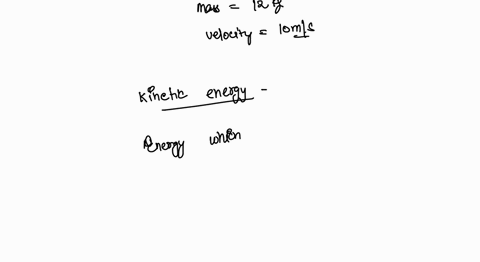 mass = 12 g
velocity = 10m/s
Kinetic energy -
Energy when